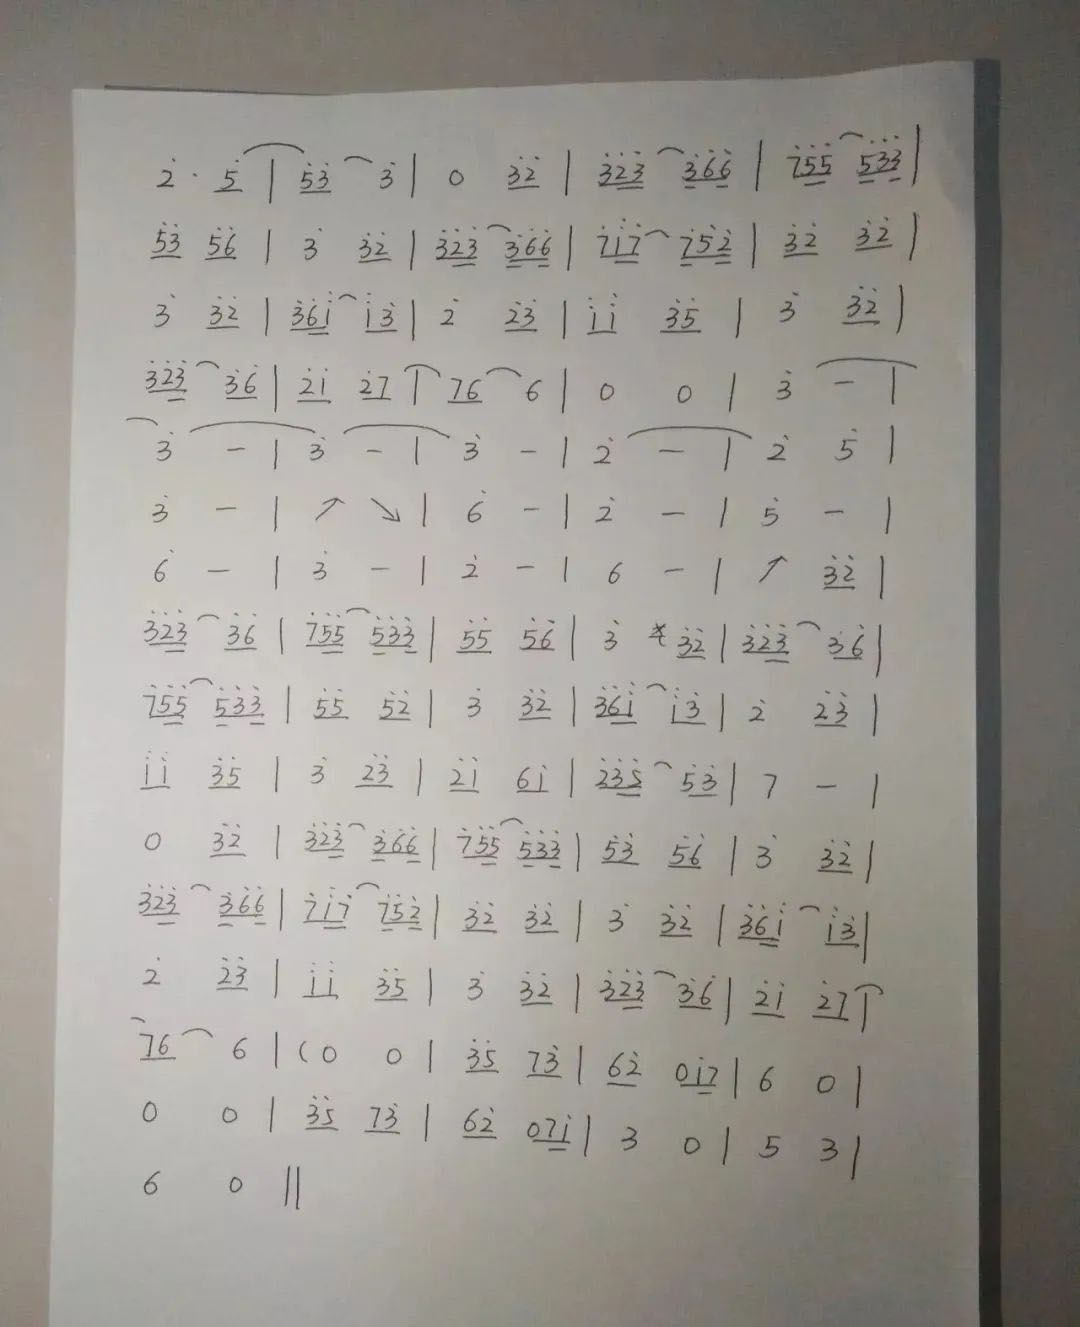 2̇ · 5̇ | 5̇3̇ 3̇ | 0 3̇2̇ | 3̇2̇3̇ 3̇6̇6̇ | 7̇5̇5̇ 5̇3̇3̇ |
5̇3̇ 5̇6̇ | 3̇ 3̇2̇ | 3̇2̇3̇ 3̇6̇6̇ | 7̇1̇7̇ 7̇5̇2̇ | 3̇2̇ 3̇2̇ |
3̇ 3̇2̇ | 3̇6̇1̇ 1̇3̇ | 2̇ 2̇3̇ | 1̇1̇ 3̇5̇ | 3̇ 3̇2̇ |
3̇2̇3̇ 3̇6̇ | 2̇1̇ 2̇7 | 76 6 | 0 0 | 3̇ – |
3̇ – | 3̇ – | 3̇ – | 2̇ – | 2̇ 5̇ |
3̇ – | ↗ ↘ | 6̇ – | 2̇ – | 5̇ – |
6̇ – | 3̇ – | 2̇ – | 6 – | ↗ 3̇2̇ |
3̇2̇3̇ 3̇6̇ | 7̇5̇5̇ 5̇3̇3̇ | 5̇5̇ 5̇6̇ | 3̇ 3̇2̇ | 3̇2̇3̇ 3̇6̇ |
7̇5̇5̇ 5̇3̇3̇ | 5̇5̇ 5̇2̇ | 3̇ 3̇2̇ | 3̇6̇1̇ 1̇3̇ | 2̇ 2̇3̇ |
1̇1̇ 3̇5̇ | 3̇ 2̇3̇ | 2̇1̇ 61̇ | 2̇3̇5̇ 5̇3̇ | 7 – |
0 3̇2̇ | 3̇2̇3̇ 3̇6̇6̇ | 7̇5̇5̇ 5̇3̇3̇ | 5̇3̇ 5̇6̇ | 3̇ 3̇2̇ |
3̇2̇3̇ 3̇6̇6̇ | 7̇1̇7̇ 7̇5̇2̇ | 3̇2̇ 3̇2̇ | 3̇ 3̇2̇ | 3̇6̇1̇ 1̇3̇ |
2̇ 2̇3̇ | 1̇1̇ 3̇5̇ | 3̇ 3̇2̇ | 3̇2̇3̇ 3̇6̇ | 2̇1̇ 2̇7 |
76 6 | (0 0 | 3̇5̇ 73̇ | 62̇ 01̇7 | 6 0 |
0 0 | 3̇5̇ 73̇ | 62̇ 071̇ | 3 0 | 5 3 |
6 0 ||